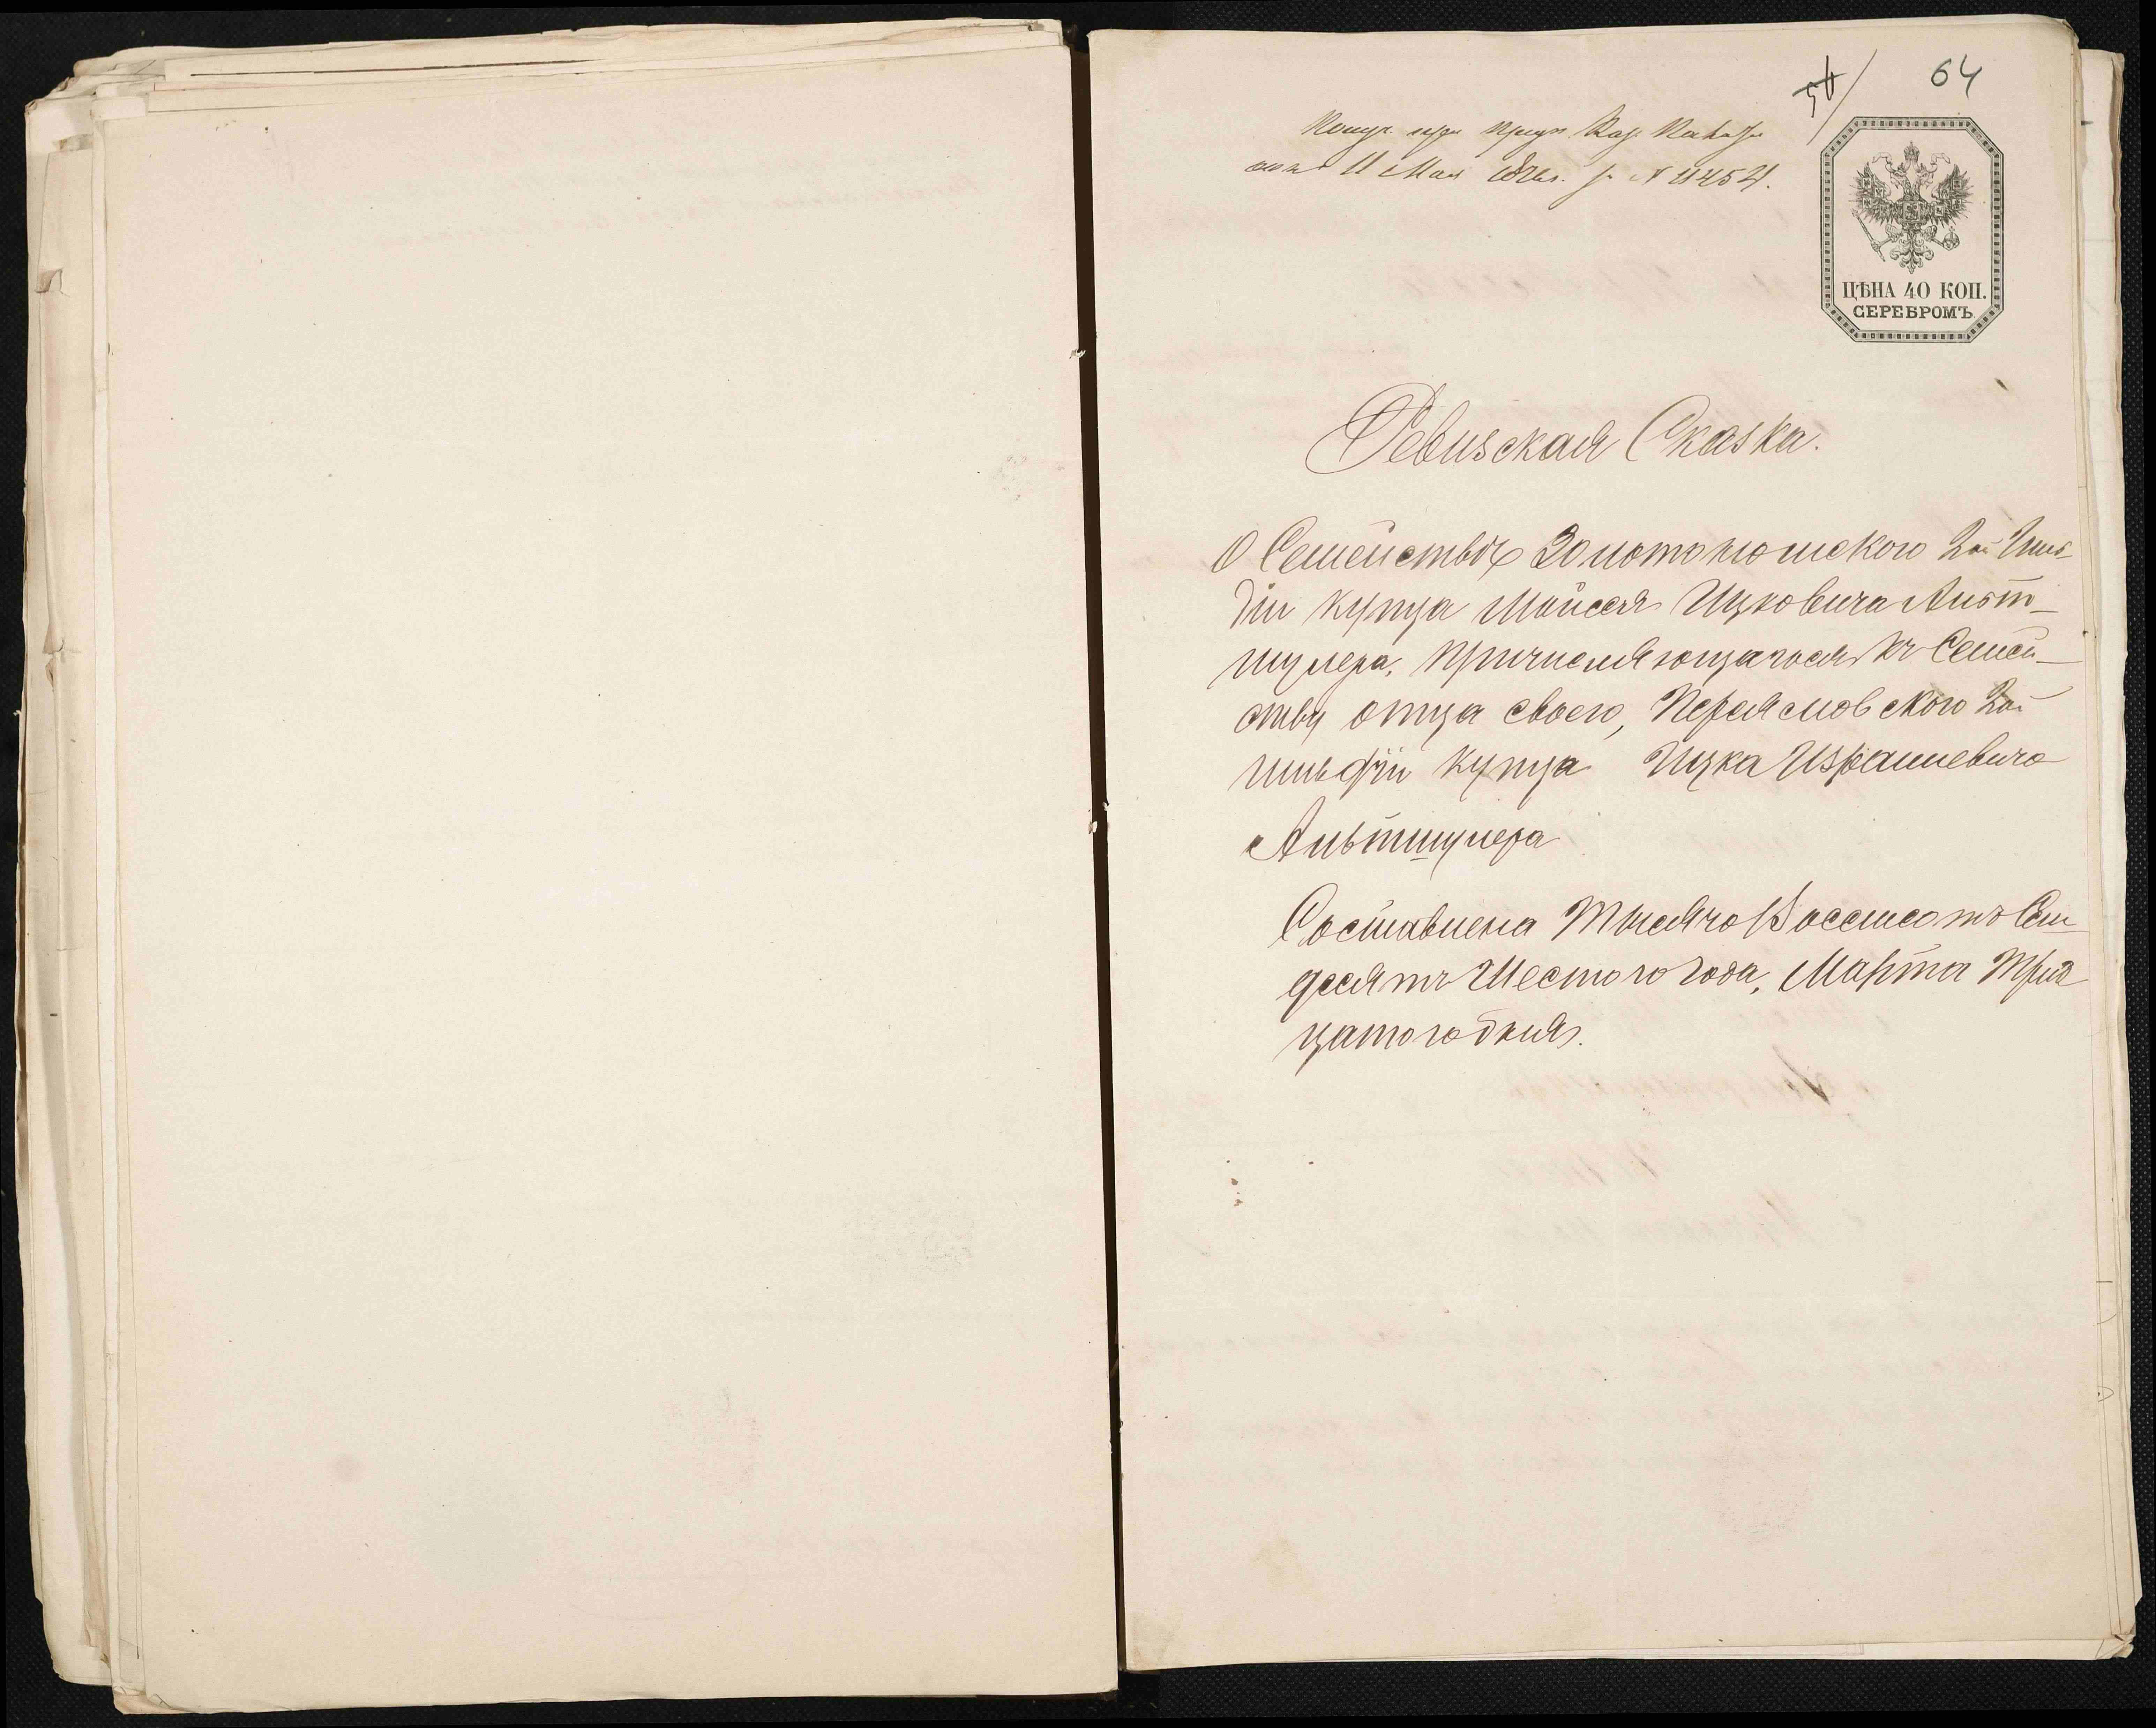 54
64
Получ. при предп. Каз. Палаты
отъ 11 Мая 1876 г. за № 11454.
ЦѢНА 40 КОП.
СЕРЕБРОМЪ
Ревизская Сказка.
О Семействѣ Золотоношского 2ой Гиль-
діи купца Мойсея Ицковича Альт-
шулера, причисляющагося къ Семей-
ству отца своего, Переяславского 2ой
гильдіи купца Ицка Израилевича
Альтшулера
Составлена Тысяча Восемсотъ Сем
десятъ Шестого года, Марта Трид
цатого дня.